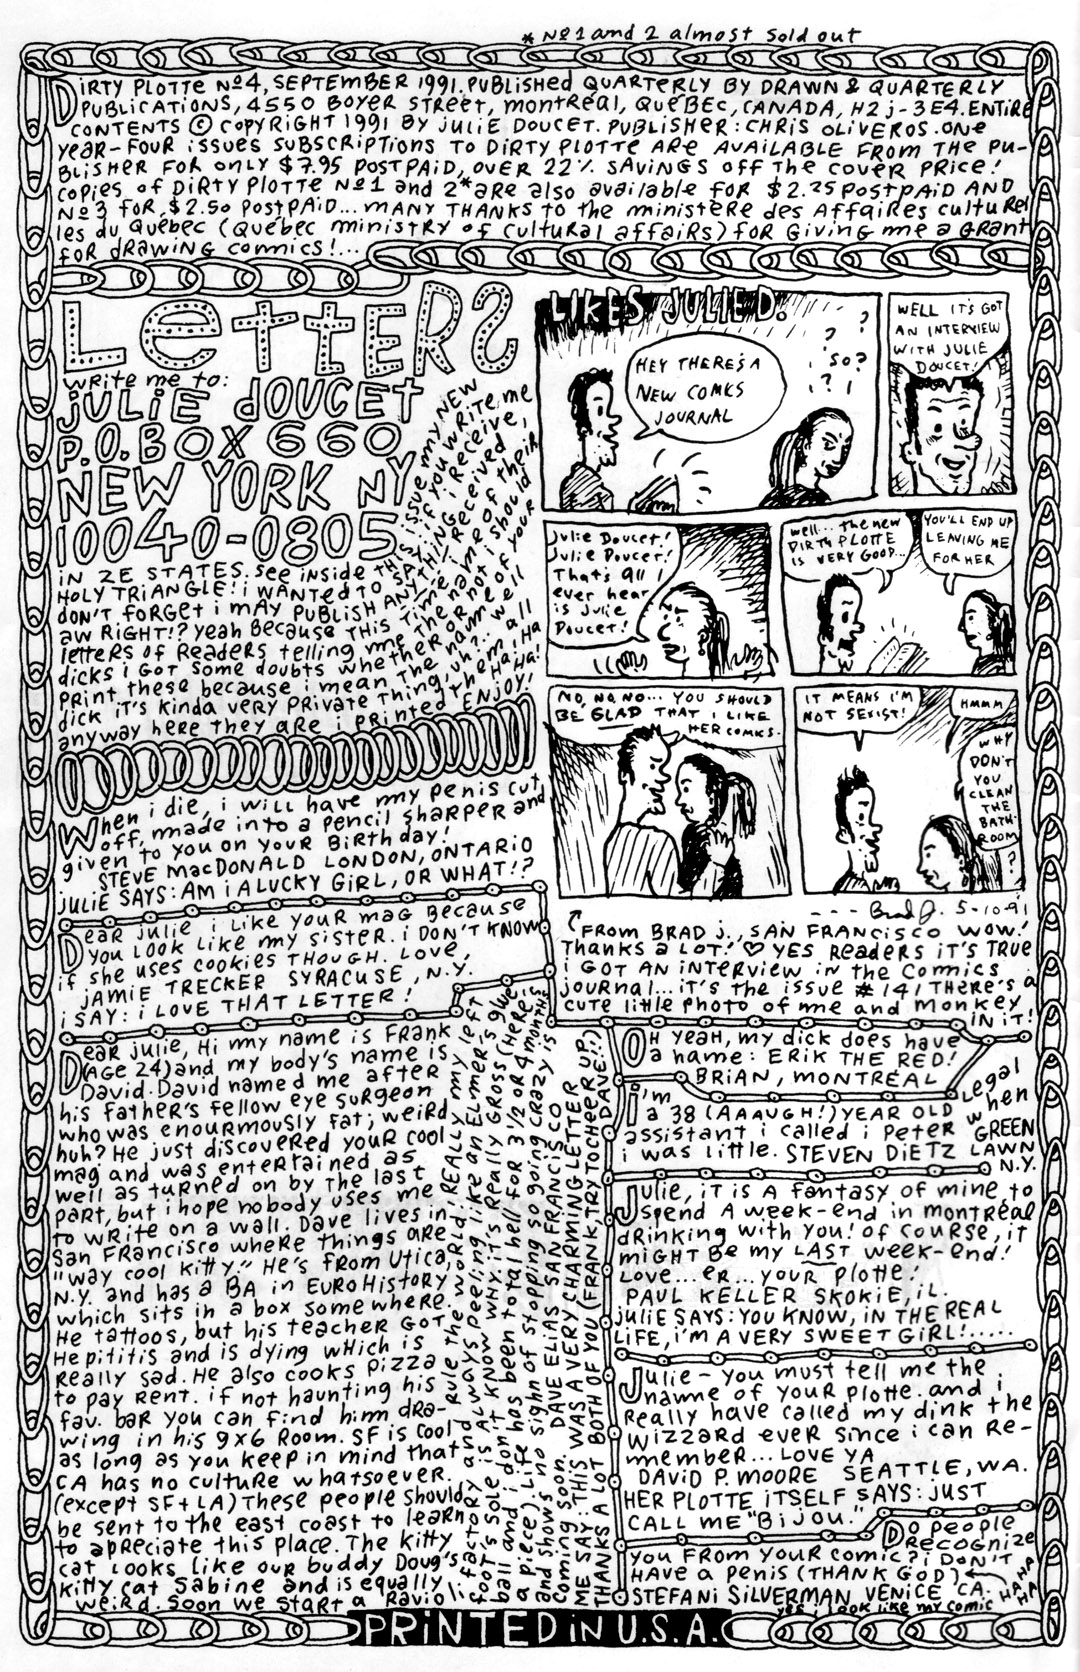 * Nº1 and 2 almost sold out
DiRTY PLOTTE Nº4, SEPTEMBER 1991. PUBLISHED QUARTERLY BY DRAWN & QUARTERLY
PUBLICATIONS, 4550 BOYER STREET, MONTREAL, QUEBEC, CANADA, H2J-3E4. ENTIRE
CONTENTS © COPYRIGHT 1991 BY JULIE DOUCET. PUBLISHER: CHRIS OLIVEROS. ONE
YEAR-FOUR ISSUES SUBSCRIPTIONS TO DIRTY PLOTTE ARE AVAILABLE FROM THE PU-
BLISHER FOR ONLY $7.95 POSTPAID, OVER 22% SAVINGS OFF THE COVER PRICE!
COPIES OF DIRTY PLOTTE Nº1 and 2* are also available FOR $2.25 POSTPAID AND
Nº3 FOR $2.50 POSTPAID... MANY THANKS TO the ministère des Affaires culturel
les du Québec (Quebec ministry of cultural affairs) FOR GiVING me a GRANT
FOR DRAWING COMICS!...
LETTERS
write me to:
JULIE DOUCET
P.O. BOX 660
NEW YORK NY
10040-0805
IN ZE STATES. see inside THIS ISSUE my NEW
HOLY TRIANGLE! i WANTED TO SAY, if YOU WRITE me
DON'T FORGET i MAY PUBLISH ANYTHING i Receive,
AW RIGHT!? Yeah Because THIS TIME i Received
letters OF Readers telling me the name of their
dicks i GOT some doubts whether OR NOT i should
print these because i mean the name of YOUR
dick it's kinda very private thing, uh?.. well
anyway here they are i PRINTED them all! HaHaHa! ENJOY!
When i die, i will have my penis cut
off, made into a pencil sharper and
given to you on your Birthday!
STEVE MacDONALD LONDON, ONTARIO
JULIE SAYS: AM i A LUCKY GIRL, OR WHAT!?
Dear Julie i like your mag Because
you look like my sister. i DON'T KNOW
if she uses cookies THOUGH. LOVE,
JAMIE TRECKER SYRACUSE, N.Y.
i SAY: i LOVE THAT LETTER!
Dear Julie, Hi my name is Frank
(Age 24) and my body's name is
David. David named me after
his father's fellow eye surgeon
who was enourmously fat; weird,
huh? He just discovered your cool
mag and was entertained as
well as turned on by the last
part, but i hope nobody uses me
to write on a wall. Dave lives in
San Francisco where things are
"way cool kitty." He's from Utica,
N.Y. and has a BA in EuroHistory
which sits in a box somewhere.
He tattoos, but his teacher got
Hepititis and is dying which is
Really sad. He also cooks pizza
to pay rent. if not haunting his
fav. bar you can find him dra-
wing in his 9x6 Room. SF is cool
as long as you keep in mind that
CA has no culture whatsoever.
(except SF+LA) These people should
be sent to the east coast to learn
to apreciate this place. The kitty
cat looks like our buddy Doug's
Kitty cat Sabine and is equally
weird. Soon we start a Ravio
li factory and rule the world. REALLY my left
foot's sole is ALWAYS peeling like an Elmer's glue
ball and i don't know why, it's Really Gross (Here,
a piece). Life has been total hell for 3 1/2 OR 4 months
and shows no sighn of stopping so going crazy is
coming soon. DAVE ELIAS SAN FRANCISCO
ME SAY: THIS WAS A VERY CHARMING LETTER
THANKS A LOT BOTH OF YOU (FRANK, TRY TO CHEER UP DAVE!!)
LIKES JULIE D.
HEY THERE'S A
NEW COMICS
JOURNAL
?
?
'SO?
?
!
WELL IT'S GOT
AN INTERVIEW
WITH JULIE
DOUCET!
Julie Doucet!
Julie Doucet!
That's all i
ever hear
is Julie
Doucet!
Well... the new
DIRTY PLOTTE
IS VERY GOOD...
YOU'LL END UP
LEAVING ME
FOR HER
NO, NO, NO... YOU SHOULD
BE GLAD THAT I LIKE
HER COMICS.
IT MEANS I'M
NOT SEXIST!
HMMM
WHY
DON'T
YOU
CLEAN
THE
BATH-
ROOM
?
--- Brad J. 5-10-91
FROM BRAD J., SAN FRANCISCO WOW!
Thanks a LOT! ♡ YES Readers iT'S TRUE
i GOT AN INTERVIEW in the Comics
Journal... it's the issue #141 THERE'S a
cute little photo of me and monkey
IN iT!
OH YEAH, my dick does have
a name: ERIK THE RED!
BRIAN, MONTRÉAL
i'm
a 38 (AAAUGH!) YEAR OLD Legal
assistant i called i PeteR when
i was little. STEVEN DIETZ GREEN
LAWN
N.Y.
Julie, it is A fantasy of mine to
spend A week-end in montréal
drinking with you! of course, it
might be my LAST week-end!
Love... er... your plotte!
PAUL KELLER SKOKIE, IL.
JULIE SAYS: YOU KNOW, IN THE REAL
LIFE, i'M A VERY SWEET GIRL!.....
Julie - you must tell me the
name of your plotte. and i
Really have called my dink the
wizzard ever since i can Re-
member... LOVE YA
DAVID P. MOORE SEATTLE, WA.
HER PLOTTE ITSELF SAYS: JUST
CALL ME "BIJOU."
Do people
Recognize
you from your comic? i DON'T
HAVE a penis (THANK GOD)
STEFANI SILVERMAN VENICE CA.
HA HA HA HA
yes i look like my comic
PRINTED IN U.S.A.